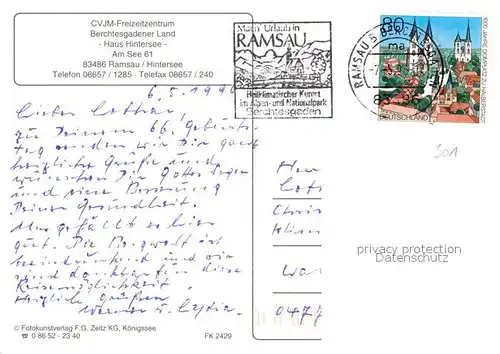 CVJM-Freizeitzentrum
Berchtesgadener Land
- Haus Hintersee -
Am See 61
83486 Ramsau / Hintersee
Telefon 08657 / 1285 - Telefax 08657 / 240
Mach' Urlaub in
RAMSAU
Heilklimatischer Kurort
im Alpen- und Nationalpark
Berchtesgaden
RAMSAU 5 BERCHTESGADEN
80
DEUTSCHLAND
1000 JAHRE DOMPLATZ ZU HALBERSTADT
6.5.1996
Lieber Lothar,
zu Deinem 66. Geburts-
tag senden wir Dir ganz
herzliche Grüße und
wünschen Dir Gottes Segen
und eine Besserung
Deiner Gesundheit.
Uns gefällt es hier
gut. Die Bergwelt ist
beeindruckend und wir
sind dankbar für diese
Reisemöglichkeit.
Herzlich grüßen
Werner u. Lydia
301
Her
Lot
Chri
privacy protection
Datenschutz
047
© Fotokunstverlag F.G. Zeitz KG, Königssee
☎ 0 86 52 - 23 40
FK 2429